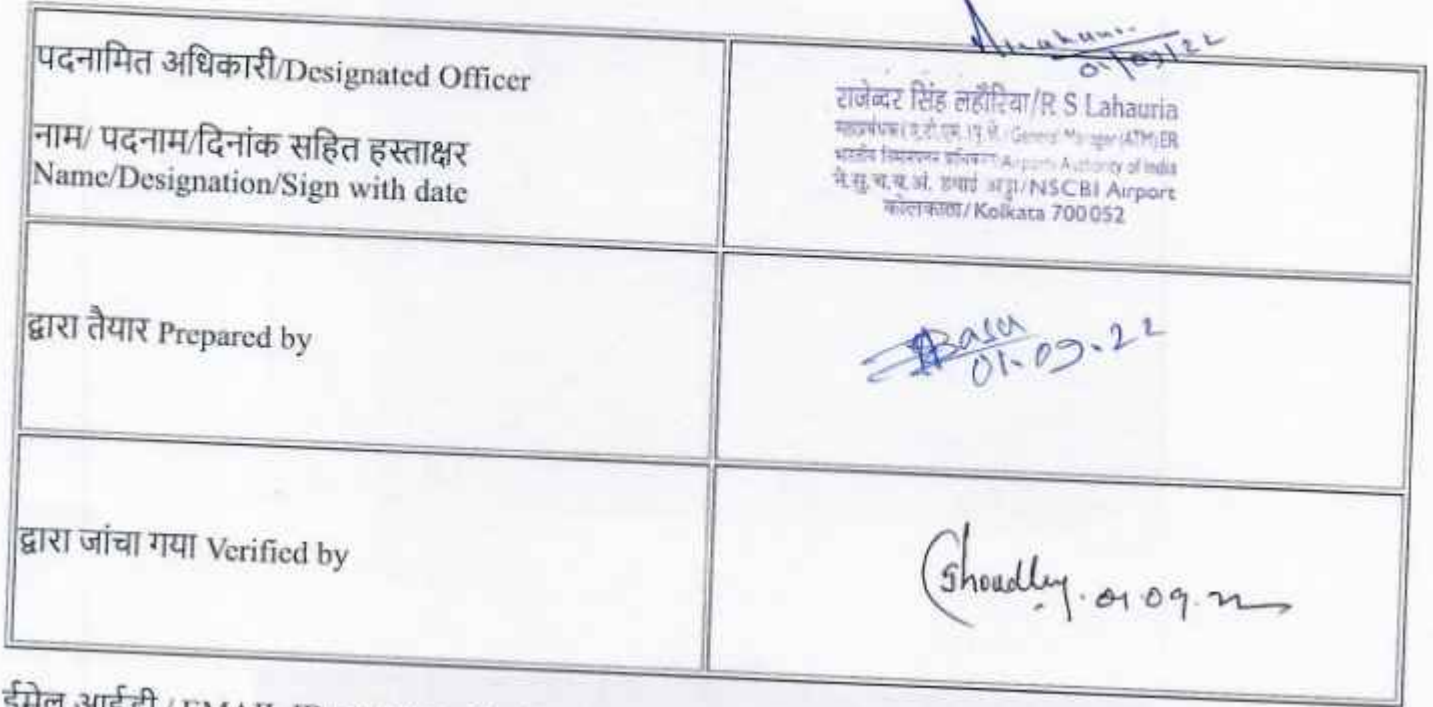 01/09/22
पदनामित अधिकारी/Designated Officer
नाम/ पदनाम/दिनांक सहित हस्ताक्षर
Name/Designation/Sign with date
राजेन्दर सिंह लहौरिया/R S Lahauria
General Manager (ATM) ER
Airports Authority of India
हवाई अड्डा/NSCBI Airport
कोलकाता/Kolkata 700052
द्वारा तैयार Prepared by
Basu
01.09.22
द्वारा जांचा गया Verified by
01.09.22
ईमेल आईडी / EMAIL ID